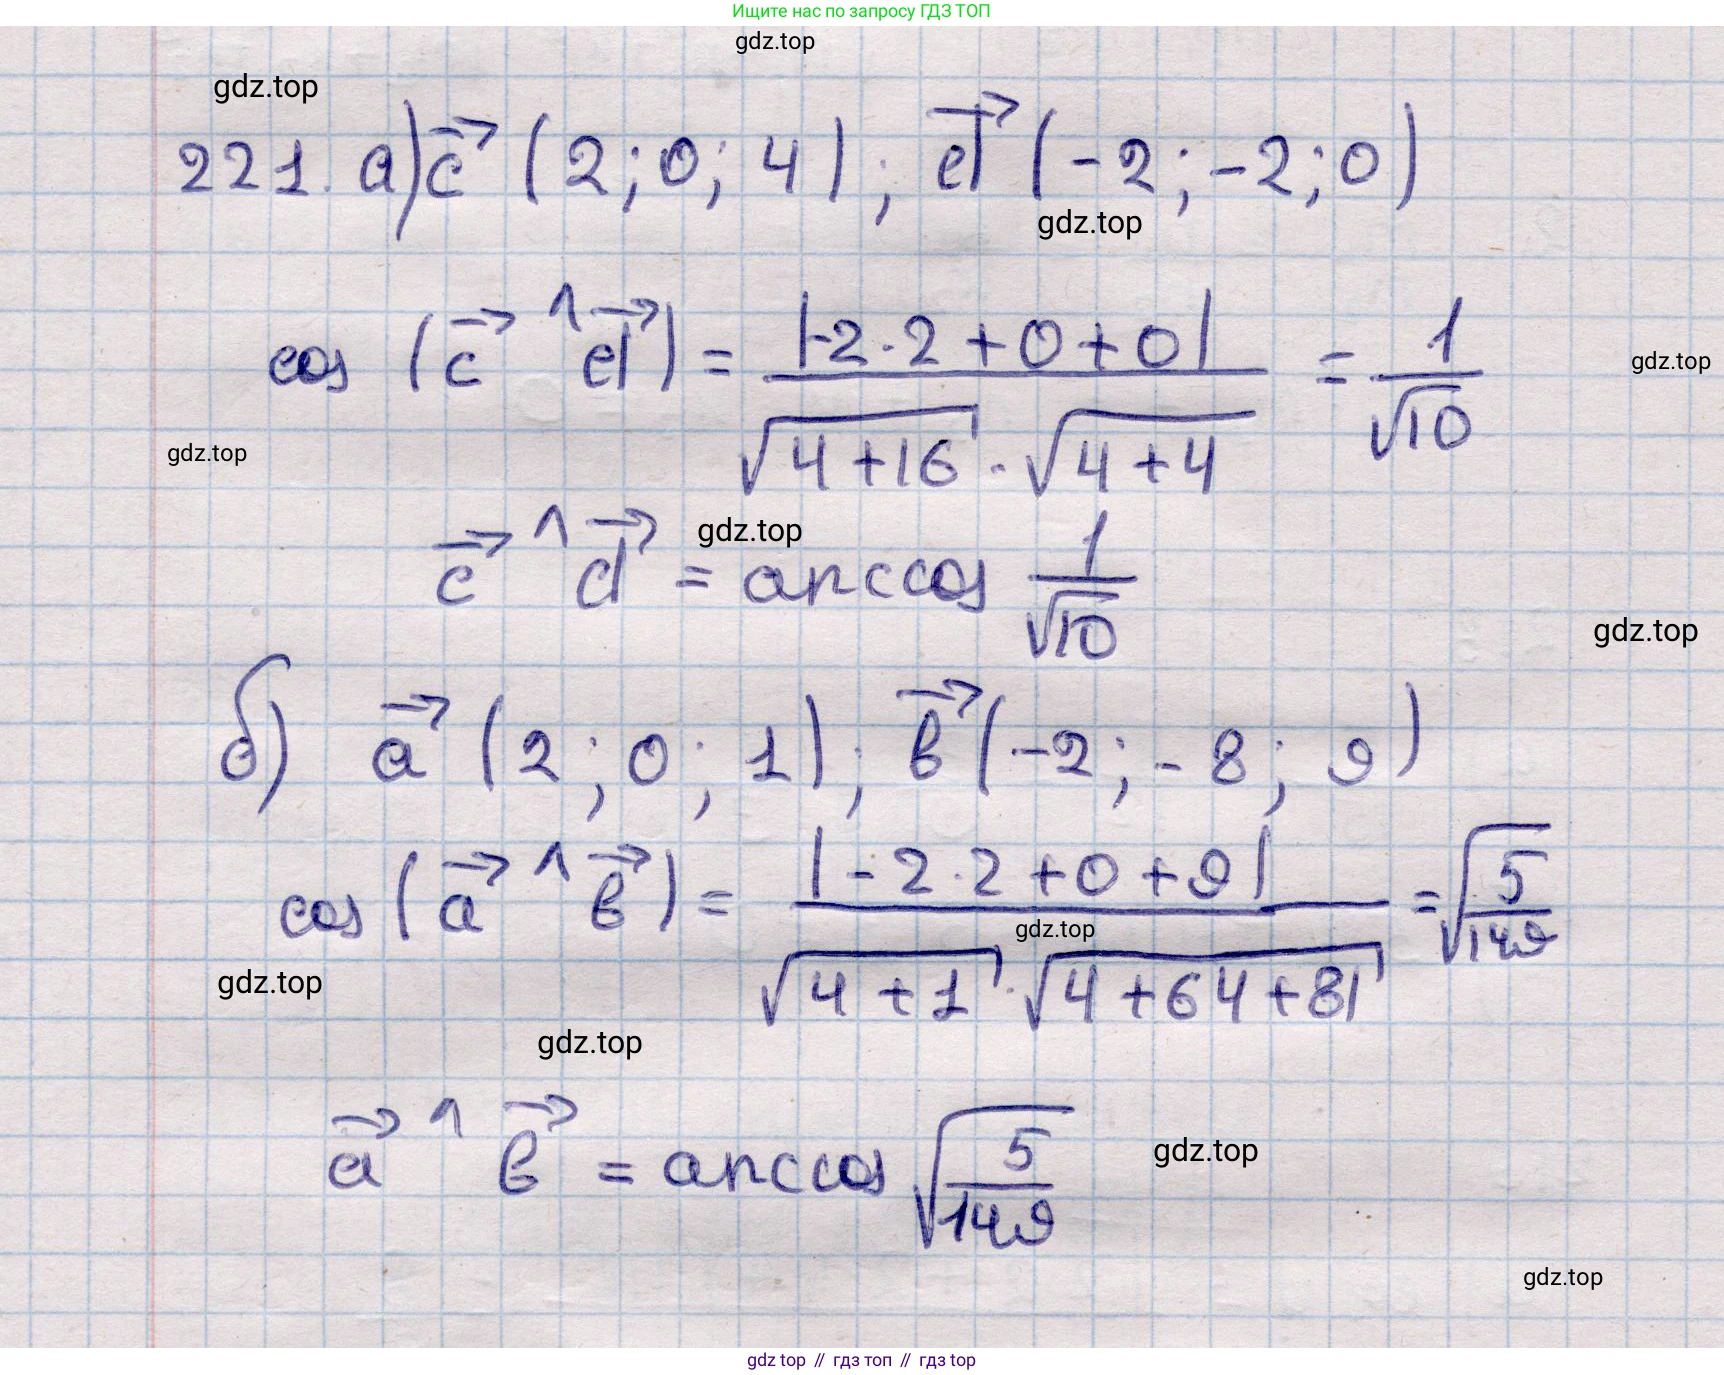 Ищите нас по запросу ГДЗ ТОП
gdz.top
gdz.top
221. а) c⃗ (2; 0; 4); d⃗ (-2; -2; 0)
gdz.top
cos (c⃗ ^ d⃗) = |-2·2+0+0| / (√(4+16) · √(4+4)) = 1/√10
gdz.top
gdz.top
c⃗ ^ d⃗ = arccos 1/√10
gdz.top
gdz.top
б) a⃗ (2; 0; 1); b⃗ (-2; -8; 9)
cos (a⃗ ^ b⃗) = |-2·2+0+9| / (√(4+1) · √(4+64+81)) = √(5/149)
gdz.top
gdz.top
gdz.top
a⃗ ^ b⃗ = arccos √(5/149)
gdz.top
gdz.top
gdz top // гдз топ // гдз top